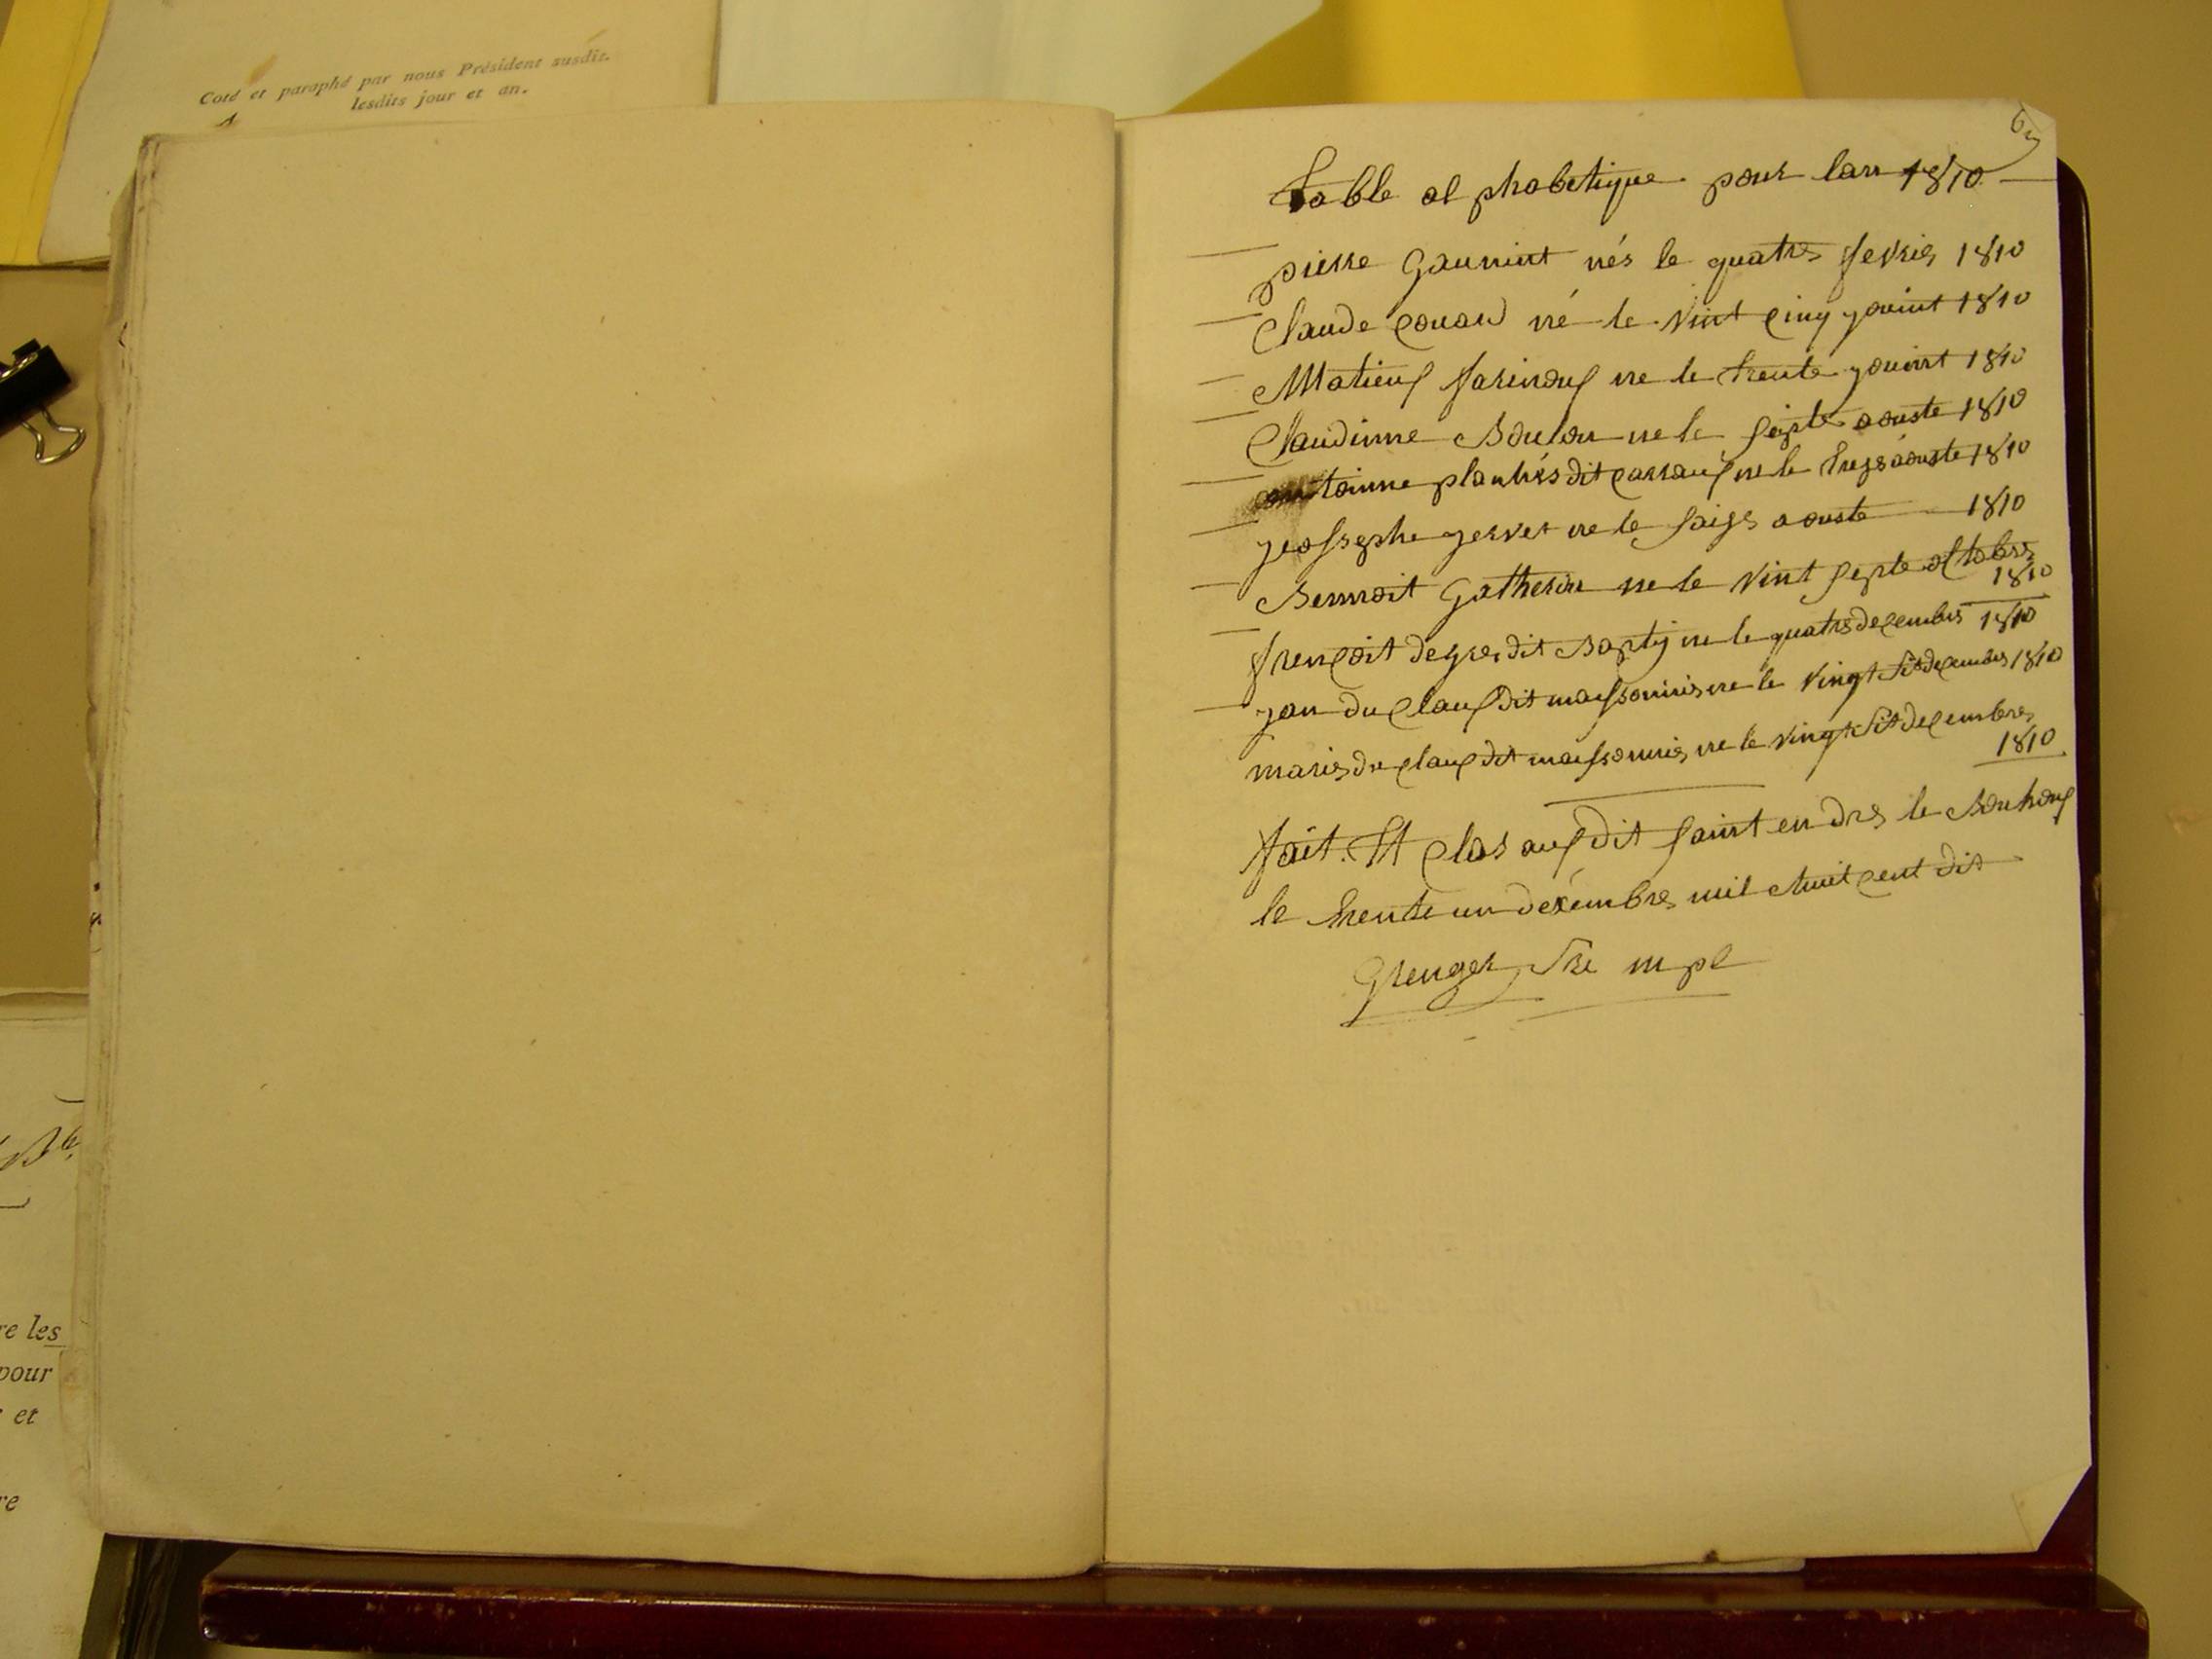 Coté et paraphé par nous Président susdit.
lesdits jour et an.
table al phabetique pour lan 1810
pierre Gaunint nés le quatre fevrier 1810
Claude Couau né le vint cinq jouint 1810
Matieux farinoux ne le trente jouint 1810
Claudinne Boulou ne le septe aouste 1810
antoinne planchés dit carraux ne le treze aouste 1810
geossephe gervet ne le saize aouste 1810
Bennoit Gatherin ne le vint septe octobre
1810
frençoit degrer dit Baptij ne le quatre decembre 1810
jan du claux dit maissonnier ne le vingt sit decembre 1810
marie du claux dit maissonnier ne le vingt sit decembre
1810
fait. Et clos aux dit saint endre le Bouhoux
le trente un decembre mil huit cent dix
Grenger
re les
pour
et
re